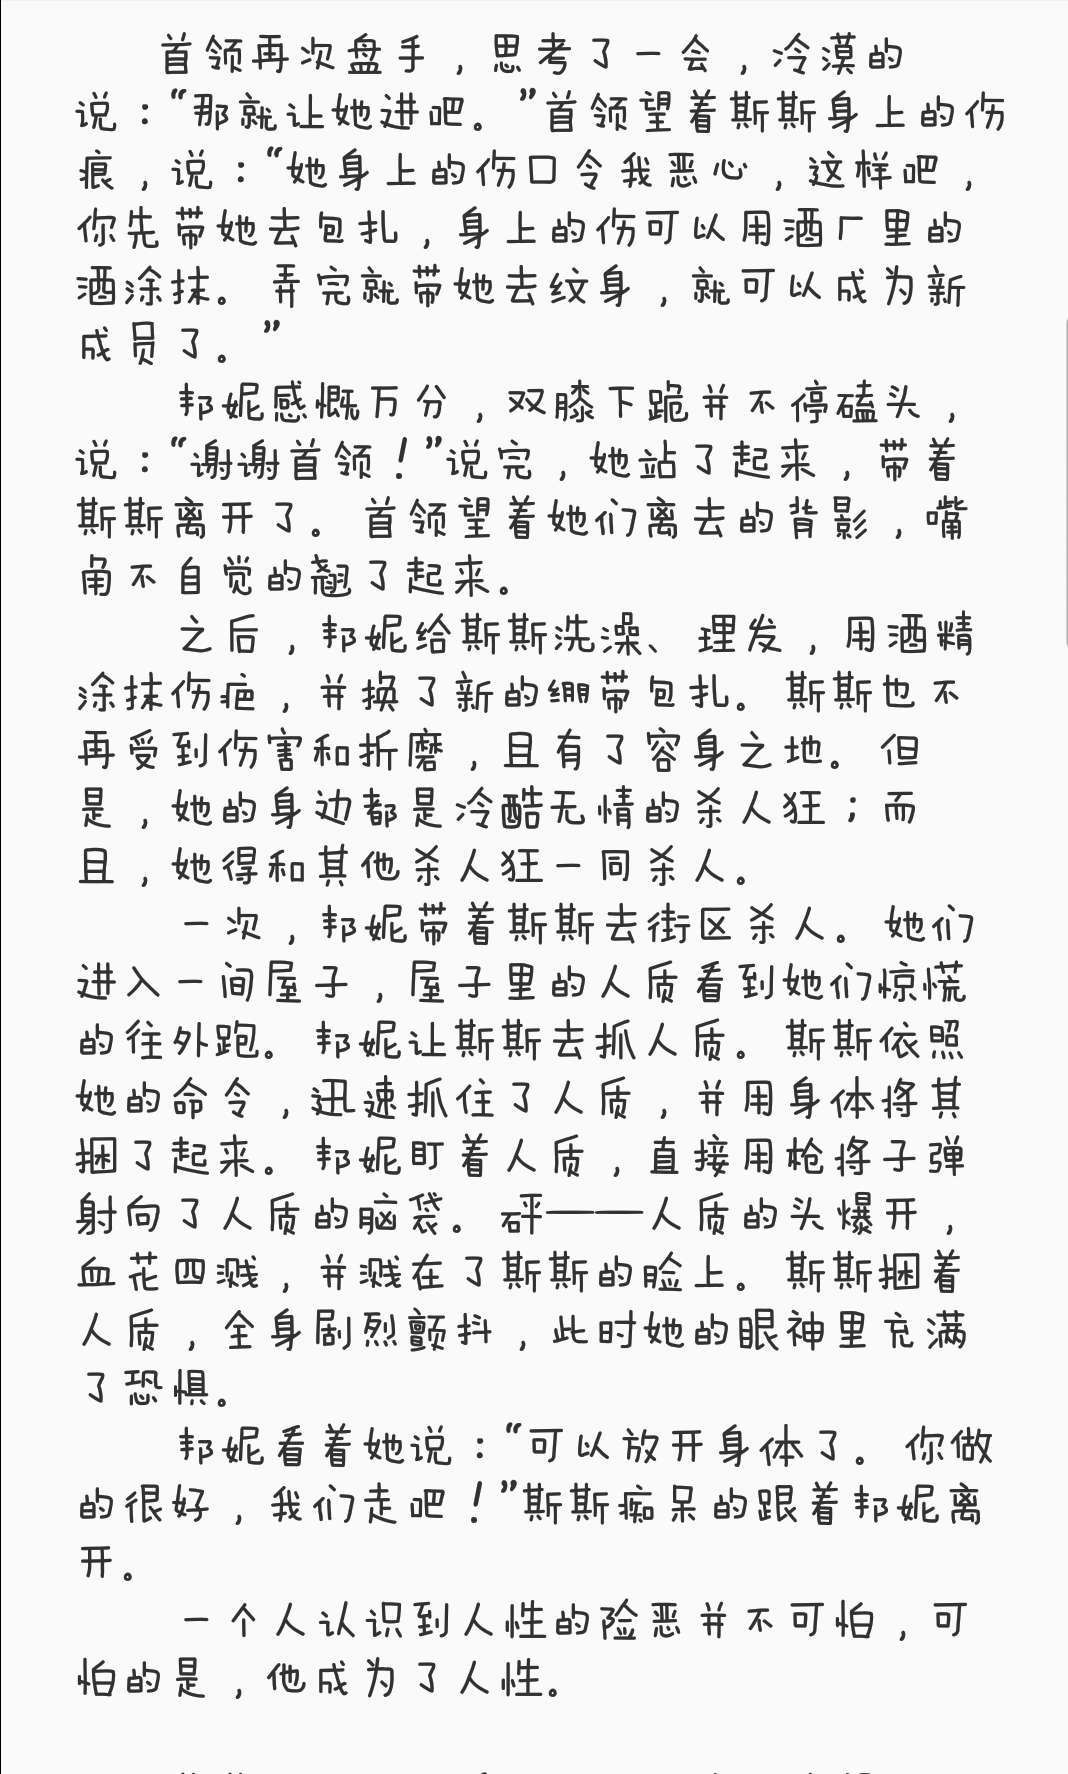 首领再次盘手，思考了一会，冷漠的
说：“那就让她进吧。”首领望着斯斯身上的伤
痕，说：“她身上的伤口令我恶心，这样吧，
你先带她去包扎，身上的伤可以用酒厂里的
酒涂抹。弄完就带她去纹身，就可以成为新
成员了。”
邦妮感慨万分，双膝下跪并不停磕头，
说：“谢谢首领！”说完，她站了起来，带着
斯斯离开了。首领望着她们离去的背影，嘴
角不自觉的翘了起来。
之后，邦妮给斯斯洗澡、理发，用酒精
涂抹伤疤，并换了新的绷带包扎。斯斯也不
再受到伤害和折磨，且有了容身之地。但
是，她的身边都是冷酷无情的杀人狂；而
且，她得和其他杀人狂一同杀人。
一次，邦妮带着斯斯去街区杀人。她们
进入一间屋子，屋子里的人质看到她们惊慌
的往外跑。邦妮让斯斯去抓人质。斯斯依照
她的命令，迅速抓住了人质，并用身体将其
捆了起来。邦妮盯着人质，直接用枪将子弹
射向了人质的脑袋。砰——人质的头爆开，
血花四溅，并溅在了斯斯的脸上。斯斯捆着
人质，全身剧烈颤抖，此时她的眼神里充满
了恐惧。
邦妮看着她说：“可以放开身体了。你做
的很好，我们走吧！”斯斯痴呆的跟着邦妮离
开。
一个人认识到人性的险恶并不可怕，可
怕的是，他成为了人性。